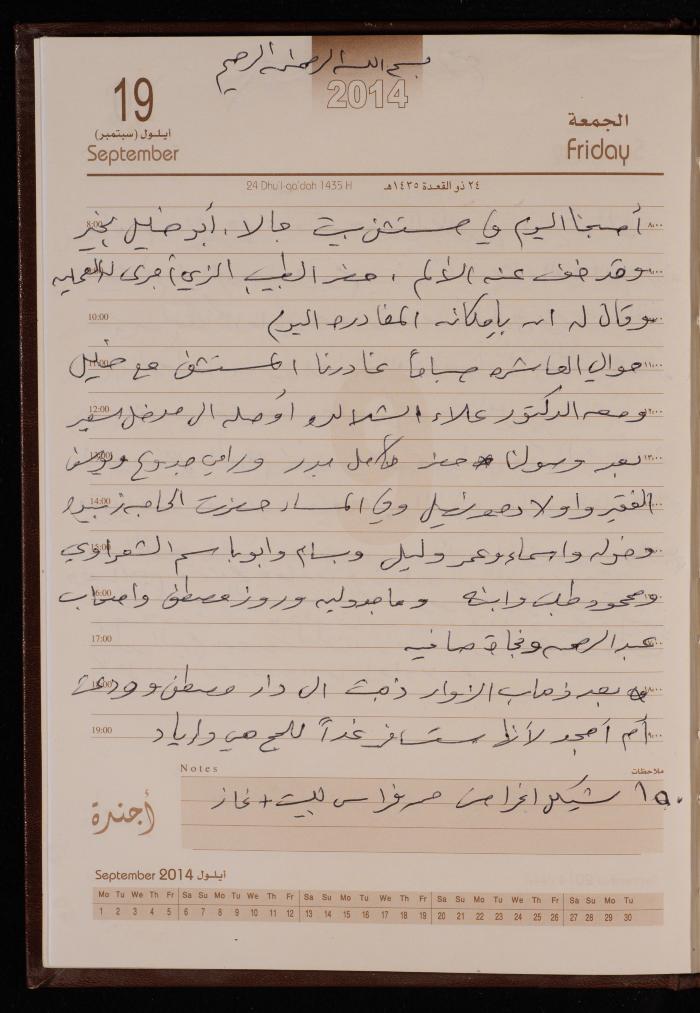 بسم الله الرحمن الرحيم
2014
19
أيلول (سبتمبر)
September
الجمعة
Friday
24 Dhu'l-qa'dah 1435 H
٢٤ ذو القعدة ١٤٣٥هـ
8:00 أصبحنا اليوم في مستشفى بيت جالا، أبو خليل بخير ٨:٠٠
وقد خف عنه الألم، حضر الطبيب الذي أجرى له العمليه
10:00 وقال له انه بإمكانه المغادره اليوم
11:00 حوالي العاشره صباحاً غادرنا المستشفى مع خليل ١١:٠٠
12:00 ومعه الدكتور علاء الشلالده أوصله الى مدخل
بعد وصولنا حضر كامل بدر ورامي جدوع ويوسف ١٣:٠٠
14:00 الفقير واولاده وفي المساء حضرت الحاجه
15:00 وخوله واسماء وعمر وليل وبسام وابو باسم الشعراوي
16:00 ومحمود طلب وابنه وماجد وليه وروز مصطفى واصحاب
17:00 عبد الرحمن ونجاة صافيه
بعد ذهاب الزوار ذهبت الى دار مصطفى وودعت
19:00 أم أمجد لأنها ستسافر غداً للحج هي واياد
Notes
ملاحظات
١٥٠ شيكل اغراض من فراس للبيت + غاز
أجندة
September 2014 أيلول
Mo Tu We Th Fr Sa Su Mo Tu We Th Fr Sa Su Mo Tu We Th Fr Sa Su Mo Tu We Th Fr Sa Su Mo Tu
1 2 3 4 5 6 7 8 9 10 11 12 13 14 15 16 17 18 19 20 21 22 23 24 25 26 27 28 29 30